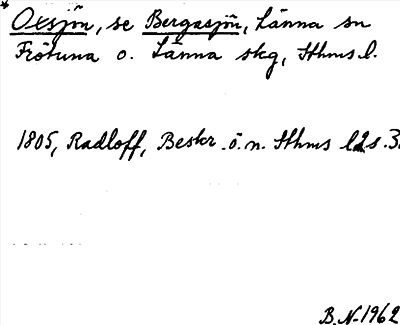 * Oxsjön, se Bergasjön, Länna sn
Frötuna o. Länna skg, Sthms l.
1805, Radloff, Beskr. ö. n. Sthms l 2 s. 3.
B. N-1962